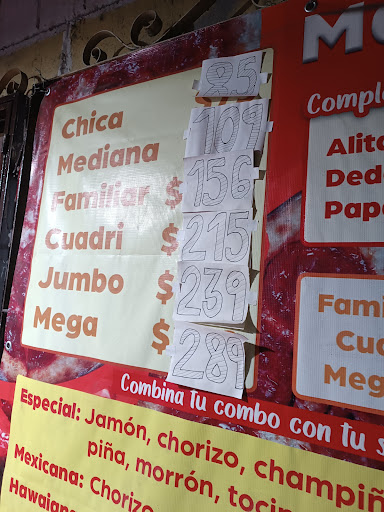 Chica 85
Mediana 109
Familiar $156
Cuadri $215
Jumbo $239
Mega $289
Comple
Alit
Ded
Pap
Fami
Cua
Meg
Combina tu combo con tu s
Especial: Jamón, chorizo, champiñ
piña, morrón, tocin
Mexicana: Chorizo
Hawaiana